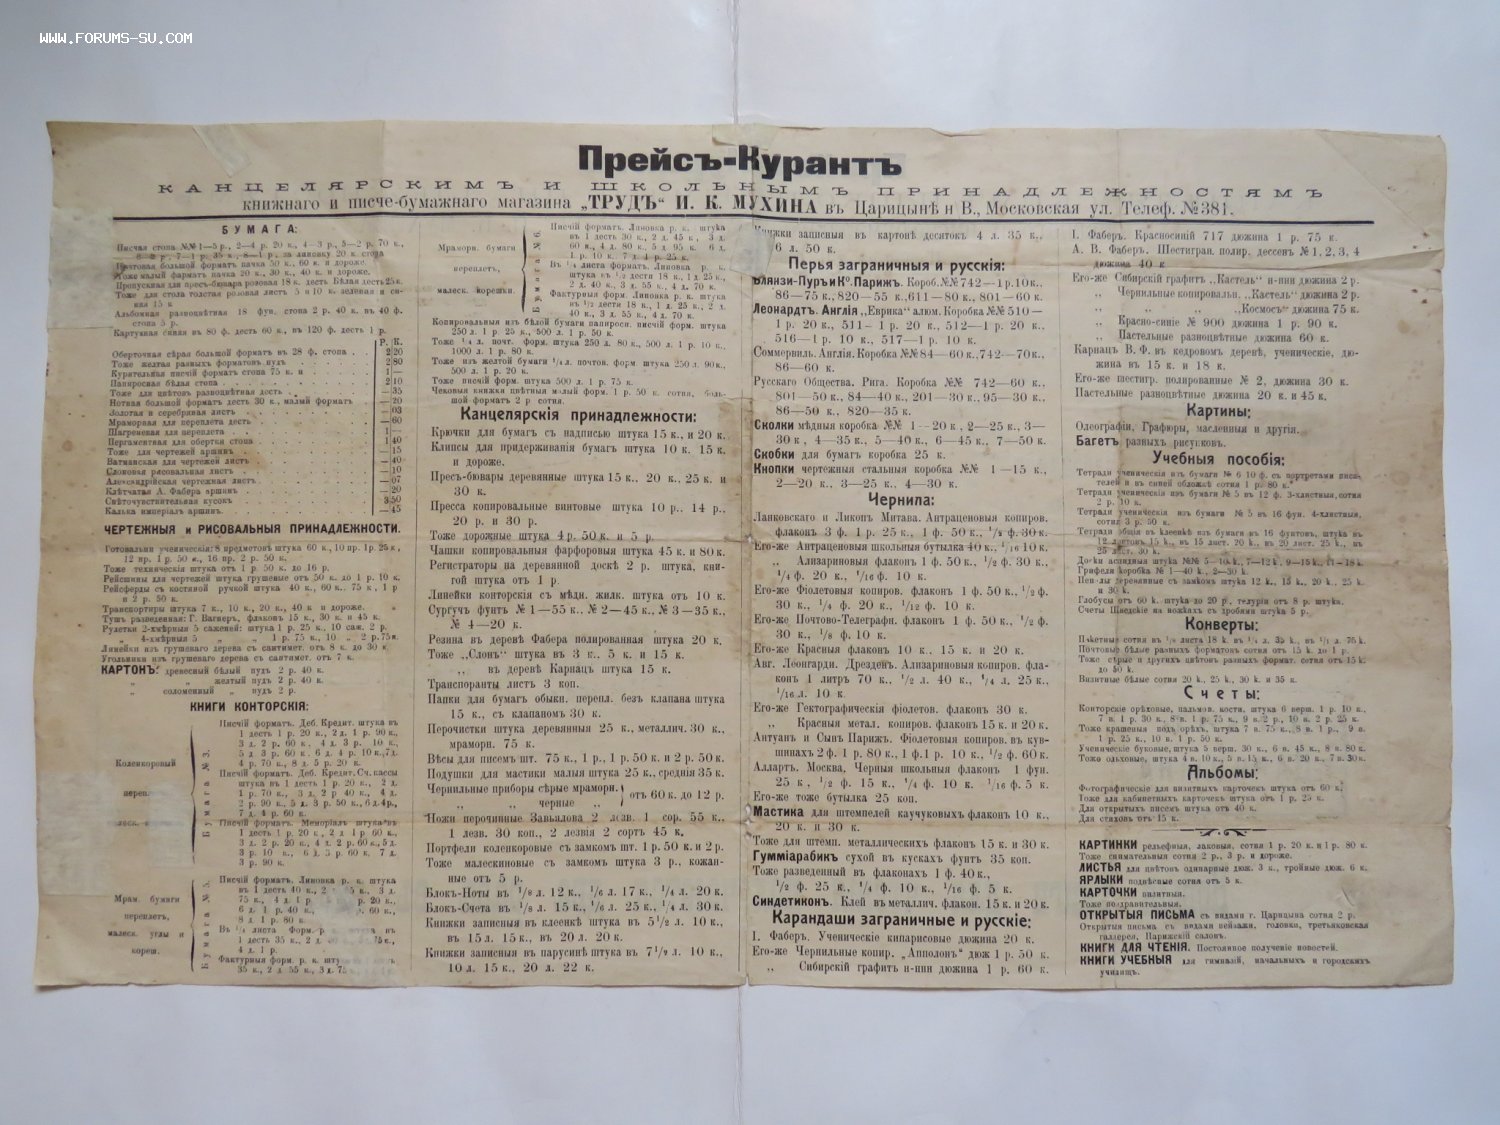 WWW.FORUMS-SU.COM
Прейсъ-Курантъ
КАНЦЕЛЯРСКИМЪ И ШКОЛЬНЫМЪ ПРИНАДЛЕЖНОСТЯМЪ
книжнаго и писче-бумажнаго магазина „ТРУДЪ“ И. К. МУХИНА въ Царицынѣ н В., Московская ул. Телеф. №381.
БУМАГА:
Писчая стопа №№ 1—5 р., 2—4 р. 20 к., 4—3 р., 5—2 р. 70 к.,
Почтовая большой форматъ пачка 50 к., 60 к. и дороже.
Тоже малый форматъ пачка 20 к., 30 к., 40 к. и дороже.
Пропускная для пресъ-бювара розовая 18 к. десть Бѣлая десть 25 к.
Тоже для стола толстая розовая листъ 5 и 10 к. зеленая и си-
няя 15 к.
Альбомная разноцвѣтная 18 фун. стопа 2 р. 40 к. въ 40 ф.
стопа 5 р.
Картузная синяя въ 80 ф. десть 60 к., въ 120 ф. десть 1 р.
Р. К.
Оберточная сѣрая большой форматъ въ 28 ф. стопа . . 2 20
Тоже желтая разныхъ форматовъ пудъ . . . 2 80
Курительная писчій форматъ стопа 75 к. и . . . 1 —
Папиросная бѣлая стопа . . . 2 10
Тоже для цвѣтовъ разноцвѣтная десть . . . — 35
Нотная большой форматъ десть 30 к., малый форматъ . . — 20
Золотая и серебряная листъ . . . — 03
Мраморная для переплета десть . . . — 60
Шагреневая для переплета . . . 1 —
Пергаментная для обертки стопа . . . 1 40
Тоже для чертежей аршинъ . . . — 15
Ватманская для чертежей листъ . . . — 40
Слоновая рисовальная листъ . . . — 10
Александрійская чертежная листъ . . . — 07
Клѣтчатая А. Фабера аршинъ . . . — 20
Свѣточувствительная кусокъ . . . 3 50
Калька имперіалъ аршинъ . . . — 45
ЧЕРТЕЖНЫЯ и РИСОВАЛЬНЫЯ ПРИНАДЛЕЖНОСТИ.
Готовальни ученическія: 8 предметовъ штука 60 к., 10 пр. 1р. 25 к.,
12 пр. 1 р. 50 к., 16 пр. 2 р. 50 к.
Тоже техническія штука отъ 1 р. 50 к. до 16 р.
Рейсшины для чертежей штука грушевые отъ 50 к. до 1 р. 10 к.
Рейсферы съ костяной ручкой штука 40 к., 60 к.. 75 к , 1 р
и 2 р. 50 к.
Транспортиры штука 7 к., 10 к., 20 к., 40 к и дороже.
Тушъ разведенная: Г. Вагнеръ, флаконъ 15 к., 30 к. и 45 к.
Рулетки 2-хмѣрныя 5 саженей: штука 1 р. 25 к., 10 саж. 2 р.
„ 4-хмѣрныя 5 „ „ 1 р. 75 к., 10 „ 2 р. 75 к.
Линейки изъ грушеваго дерева съ сантимет. отъ 8 к. до 30 к.
Угольники изъ грушеваго дерева съ сантимет. отъ 7 к.
КАРТОНЪ: древесный бѣлый пудъ 2 р. 40 к.
„ „ желтый пудъ 2 р. 40 к.
„ соломенный „ пудъ 2 р.
КНИГИ КОНТОРСКІЯ:
Коленкоровый
переп.
Бумага № 3.
Писчій форматъ. Деб. Кредит. штука въ
1 десть 1 р. 20 к., 2 д. 1 р. 90 к.,
3 д. 2 р. 60 к , 4 д. 3 р. 10 к.,
5 д 3 р 60 к . 6 д. 4 р. 10 к., 7 д.
4 р. 70 к., 8 д. 5 р. 20 к.
Писчій форматъ. Деб. Кредит. Сч. кассы
штука въ 1 десть 1 р. 20 к., 2 д.
1 р. 70 к., 3 д. 2 р 40 к., 4 д.
2 р. 90 к., 5 д. 3 р. 50 к., 6 д. 4р.,
7 д. 4 р. 60 к.
Писчій форматъ. Меморіалъ штука въ
1 десть 1 р. 20 к , 2 д 1 р 60 к.,
3 д. 2 р. 20 к., 4 д. 2 р. 60 к., 5 д
3 р. 10 к., 6 д. 3 р. 60 к. 7 д.
3 р. 90 к.
Мрам. бумаги
переплетъ,
малеск. углы и
кореш.
Писчій форматъ. Линовка р. к. штука
въ 1 десть 40 к., 2 5 к., 3 д.
75 к., 4 д. 1 р р. 20 к.,
6 д. 1 р. 40 к., р. 60 к.,
8 д. 1 р. 80 к.
Въ ¹/₄ листа Форм. р
1 десть 35 к., 2 д.
4 д. 1 р.
Фактурныя форм. р. к. шту
35 к., 2 д 55 к., 3 д. 75
Мрамори. бумаги
переплетъ,
малеск. корешки.
Бумага № 6.
Писчій форматъ. Линовка р. к. штука
въ 1 десть 30 к., 2 д. 45 к , 3 д.
60 к., 4 д. 80 к. 5 д 95 к. 6 д.
1 р. 10 к. 7 д 1 р. 25 к.
Въ ¹/₄ листа формать. Линовка р. к.,
штука въ ¹/₂ дести 18 к., 1 д 25 к.,
2 д. 40 к., 3 д. 55 к., 4 д. 70 к.
Фактурныя форм. Линовка р. к. штука
въ ¹/₂ дести 18 к., 1 д. 25 к., 2 д.
40 к., 3 д. 55 к., 4 д. 70 к.
Копировальныя изъ бѣлой бумаги папиросн. писчій форм. штука
250 л. 1 р. 25 к., 500 л. 1 р. 50 к.
Тоже ¹/₄ л. почт. форм. штука 250 л. 80 к., 500 л. 1 р. 10 к.,
1000 л. 1 р. 80 к.
Тоже изъ желтой бумаги ¹/₄ л. почтов. форм штука 250 л. 90 к.,
500 л. 1 р. 20 к.
Тоже писчій форм. штука 500 л. 1 р. 75 к.
Чековыя книжки цвѣтныя малый форм. 1 р. 50 к. сотня, боль-
шой форматъ 2 р сотня.
Канцелярскія принадлежности:
Крючки для бумагъ съ надписью штука 15 к., и 20 к.
Клипсы для придерживанія бумагъ штука 10 к. 15 к.
и дороже.
Пресъ-бювары деревянные штука 15 к.. 20 к., 25 к. и
30 к.
Пресса копировальные винтовые штука 10 р., 14 р.,
20 р. и 30 р.
Тоже дорожные штука 4 р. 50 к. и 5 р.
Чашки копировальныя фарфоровыя штука 45 к. и 80 к.
Регистраторы на деревянной доскѣ 2 р. штука, кни-
гой штука отъ 1 р.
Линейки конторскія съ мѣди. жилк. штука отъ 10 к.
Сургучъ фунтъ № 1—55 к.. № 2—45 к., № 3—35 к.,
№ 4—20 к.
Резина въ деревѣ Фабера полированная штука 20 к.
Тоже „Слонъ“ штука въ 3 к.. 5 к. и 15 к.
„ въ деревѣ Карнацъ штука 15 к.
Транспоранты листъ 3 коп.
Папки для бумагъ обыкн. перепл. безъ клапана штука
15 к., съ клапаномъ 30 к.
Перочистки штука деревянныя 25 к., металлич. 30 к.,
мраморн. 75 к.
Вѣсы для писемъ шт. 75 к., 1 р., 1 р. 50 к. и 2 р. 50 к.
Подушки для мастики малыя штука 25 к., среднія 35 к.
Чернильные приборы сѣрые мраморн.
„ „ черные „
отъ 60 к. до 12 р.
Ножи перочинные Завьялова 2 лезв. 1 сор. 55 к..
1 лезв. 30 коп., 2 лезвія 2 сортъ 45 к.
Портфели коленкоровые съ замкомъ шт. 1 р. 50 к. и 2 р.
Тоже малескиновые съ замкомъ штука 3 р., кожан-
ные отъ 5 р.
Блокъ-Ноты въ ¹/₈ л. 12 к., ¹/₆ л. 17 к., ¹/₄ л. 20 к.
Блокъ-Счета въ ¹/₈ л. 15 к., ¹/₆ л. 25 к., ¹/₄ л. 30 к.
Книжки записныя въ клеенкѣ штука въ 5¹/₂ л. 10 к.,
въ 15 л. 15 к., въ 20 л. 20 к.
Книжки записныя въ парусинѣ штука въ 7¹/₂ л. 10 к.,
10 л. 15 к., 20 л. 22 к.
Книжки записныя въ картонѣ десятокъ 4 л. 35 к.,
6 л. 50 к.
Перья заграничныя и русскія:
Блянзи-Пуръ и Кº. Парижъ. Короб. №№ 742—1 р. 10 к.,
86—75 к., 820—55 к., 611—80 к., 801—60 к.
Леонардтъ. Англія „Еврика“ алюм. Коробка №№ 510—
1 р. 20 к., 511— 1 р. 20 к., 512—1 р. 20 к.,
516—1 р. 10 к., 517—1 р. 10 к.
Соммервиль. Англія. Коробка №№ 84—60 к., 742—70 к.,
86—60 к.
Русскаго Общества. Рига. Коробка №№ 742—60 к.,
801—50 к., 84—40 к., 201—30 к., 95—30 к.,
86—50 к., 820—35 к.
Сколки мѣдныя коробка №№ 1—20 к , 2—25 к., 3—
30 к , 4—35 к., 5—40 к., 6—45 к., 7—50 к.
Скобки для бумагъ коробка 25 к.
Кнопки чертежныя стальныя коробка №№ 1—15 к.,
2—20 к., 3—25 к., 4—30 к.
Чернила:
Ланковскаго и Ликопъ Митава. Антраценовыя копиров.
флаконъ 3 ф. 1 р. 25 к., 1 ф. 50 к., ¹/₂ ф. 30 к.
Его-же Антраценовыя школьныя бутылка 40 к., ¹/₁₆ 10 к.
„ Ализариновыя флаконъ 1 ф. 50 к., ¹/₂ ф. 30 к.,
¹/₄ ф. 20 к., ¹/₁₆ ф. 10 к.
Его-же Фіолетовыя копиров. флаконъ 1 ф. 50 к., ¹/₂ ф.
30 к., ¹/₄ ф. 20 к., ¹/₁₂ ф. 10 к.
Его-же Почтово-Телеграфн. флаконъ 1 ф. 50 к., ¹/₂ ф.
30 к., ¹/₈ ф. 10 к.
Его-же Красныя флаконъ 10 к.. 15 к. и 20 к.
Авг. Леонгарди. Дрезденъ. Ализариновыя копиров. фла-
конъ 1 литръ 70 к., ¹/₂ л. 40 к., ¹/₄ л. 25 к.,
¹/₁₆ л. 10 к.
Его-же Гектографическія фіолетов. флаконъ 30 к.
„ Красныя метал. копиров. флаконъ 15 к. и 20 к.
Антуанъ и Сынъ Парижъ. Фіолетовыя копиров. въ кув-
шинахъ 2 ф. 1 р. 80 к., 1 ф. 1 р. 10 к., ¹/₂ ф. 60 к.
Аллартъ. Москва, Черныя школьныя флаконъ 1 фун.
25 к , ¹/₂ ф. 15 к., ¹/₄ ф. 10 к. ¹/₁₆ ф. 5 к.
Его-же тоже бутылка 25 коп.
Мастика для штемпелей каучуковыхъ флаконъ 10 к.,
20 к. и 30 к.
Тоже для штемп. металлическихъ флаконъ 15 к. и 30 к.
Гумміарабикъ сухой въ кускахъ фунтъ 35 коп.
Тоже разведенный въ флаконахъ 1 ф. 40 к.,
¹/₂ ф. 25 к., ¹/₄ ф. 10 к., ¹/₁₆ ф. 5 к.
Синдетиконъ. Клей въ металлич. флакон. 15 к. и 20 к.
Карандаши заграничные и русскіе:
І. Фаберъ. Ученическіе кипарисовые дюжина 20 к.
Его-же Чернильные копир. „Апполонъ“ дюж 1 р. 50 к.
„ Сибирскій графитъ н-пин дюжина 1 р. 60 к.
І. Фаберъ. Красносиній 717 дюжина 1 р. 75 к.
А. В. Фаберъ. Шестигран. полир. дессенъ № 1, 2, 3, 4
дюжина 40 к
Его-же Сибирскій графитъ „Кастель“ н-пин дюжина 2 р.
„ Чернильные копировальн. „Кастель“ дюжина 2 р.
„ „ „ „Космосъ“ дюжина 75 к.
„ Красно-синіе № 900 дюжина 1 р. 90 к.
„ Пастельные разноцвѣтные дюжина 60 к.
Карнацъ В. Ф. въ кедровомъ деревѣ, ученическіе, дю-
жина въ 15 к. и 18 к.
Его-же шестигр. полированные № 2, дюжина 30 к.
Пастельные разноцвѣтные дюжина 20 к. и 45 к.
Картины:
Олеографіи, Графюры, масленныя и другія.
Багетъ разныхъ рисунковъ.
Учебныя пособія:
Тетради ученическія изъ бумаги № 6 10 ф. съ портретами писа-
телей и въ синей обложкѣ сотня 1 р. 80 к.
Тетради ученическія изъ бумаги № 5 въ 12 ф. 3-хлистныя, сотня
2 р. 10 к.
Тетради ученическія изъ бумаги № 5 въ 16 фун. 4-хлистныя,
сотня 3 р. 50 к.
Тетради общія въ клеенкѣ изъ бумаги въ 16 фунтовъ, штука въ
12 листовъ 15 к., въ 15 лист. 20 к., въ 20 лист. 25 к., въ
25 лист. 30 к.
Доски аспидныя штука №№ 5—10 к., 7—12 к., 9—15 к., 11—18 к.
Грифели коробка № 1—40 к., 2—30 к.
Пеналы деревянные съ замкомъ штука 12 к., 15 к., 20 к., 25 к.
и 30 к.
Глобусы отъ 60 к. штука до 20 р., телуріи отъ 8 р. штука.
Счеты Шведскіе на ножкахъ съ дробями штука 5 р.
Конверты:
Пакетные сотня въ ¹/₈ листа 18 к. въ ¹/₄ л. 35 к., въ ¹/₂ л. 75 к.
Почтовые бѣлые разныхъ форматовъ сотня отъ 15 к. до 1 р.
Тоже сѣрые и другихъ цвѣтовъ разныхъ формат. сотня отъ 15 к.
до 50 к.
Визитные бѣлые сотня 20 к., 25 к., 30 к. и 35 к.
Счеты:
Конторскіе орѣховые, пальмов. кости, штука 6 верш. 1 р. 10 к.,
7 в. 1 р. 30 к., 8 в. 1 р. 75 к., 9 в. 2 р., 10 в. 2 р. 25 к.
Тоже крашеныя подъ орѣхъ, штука 7 в. 75 к., 8 в. 1 р., 9 в.
1 р. 25 к., 10 в. 1 р. 50 к.
Ученическіе буковые, штука 5 верш. 30 к., 6 в. 45 к., 8 в. 80 к.
Тоже ольховые, штука 4 в. 10 к., 5 в. 15 к., 6 в. 20 к., 7 в. 30 к.
Альбомы:
Фотографическіе для визитныхъ карточекъ штука отъ 60 к.
Тоже для кабинетныхъ карточекъ штука отъ 1 р. 25 к.
Для открытыхъ писемъ штука отъ 40 к.
Для стиховъ отъ 15 к.
КАРТИНКИ рельефныя, лаковыя, сотня 1 р. 20 к. и 1 р. 80 к.
Тоже снимательныя сотня 2 р., 3 р. и дороже.
ЛИСТЬЯ для цвѣтовъ одинарные дюж. 3 к., тройные дюж. 6 к.
ЯРЛЫКИ подвѣсные сотня отъ 5 к.
КАРТОЧКИ визитныя.
Тоже поздравительныя.
ОТКРЫТЫЯ ПИСЬМА съ видами г. Царицына сотня 2 р.
Открытыя письма съ видами пейзажи, головки, третьяковская
галлерея, Парижскій салонъ.
КНИГИ ДЛЯ ЧТЕНІЯ. Постоянное полученіе новостей.
КНИГИ УЧЕБНЫЯ для гимназій, начальныхъ и городскихъ
училищъ.